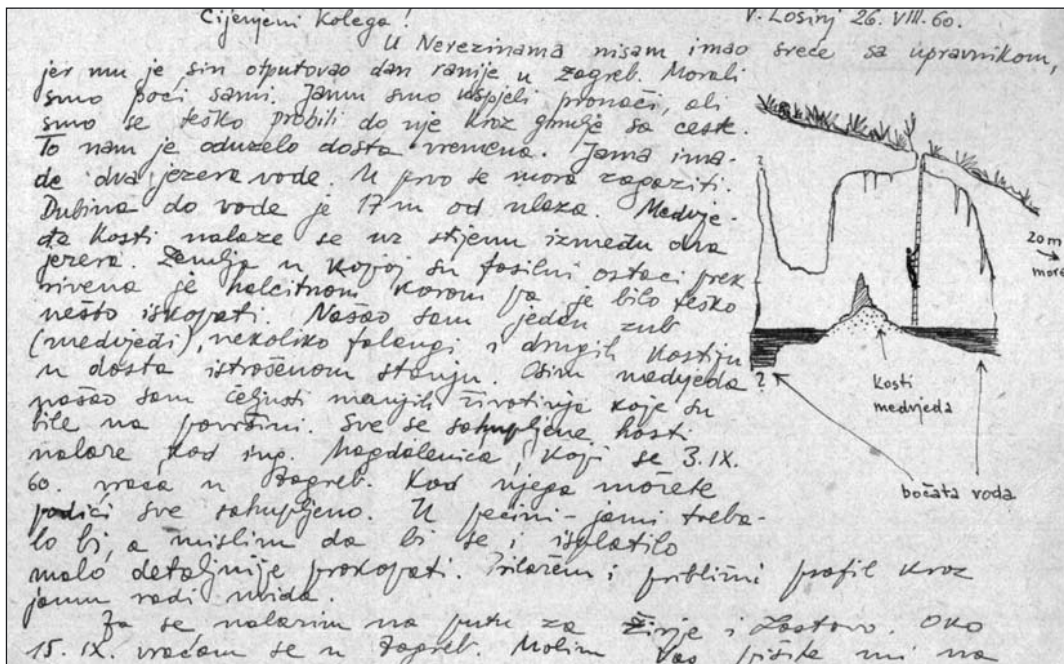 Cijenjeni Kolega!
V. Lošinj 26. VIII. 60.
U Nerezinama nisam imao sreće sa upravnikom,
jer mu je sin otputovao dan ranije u Zagreb. Morali
smo poći sami. Jamu smo uspjeli pronaći, ali
smo se teško probili do nje kroz grmlje sa ceste.
To nam je oduzelo dosta vremena. Jama ima-
de dva jezera vode. U prvo se mora zagaziti.
Dubina do vode je 17 m od ulaza. Medvje-
đe kosti nalaze se uz stijenu između dva
jezera. Zemlja u kojoj su fosilni ostaci prek
rivena je kalcitnom korom pa je bilo teško
nešto iskopati. Našao sam jedan zub
(medvjeđi), nekoliko falangi i drugih kostiju
u dosta istrošenom stanju. Osim medvjeda
našao sam čeljusti manjih životinja koje su
bile na površini. Sve se sakupljene kosti
nalaze kod ing. Magdalenića, koji se 3. IX.
60. vraća u Zagreb. Kod njega možete
podići sve sakupljeno. U pećini-jami treba-
lo bi, a mislim da bi se i isplatilo
malo detaljnije prokopati. Prilažem i približni profil kroz
jamu radi uvida.
Ja se nalazim na putu za Žirje i Lastovo. Oko
15. IX. vraćam se u Zagreb. Molim Vas pišite mi na
?
20 m
more
?
Kosti
medvjeda
bočata voda